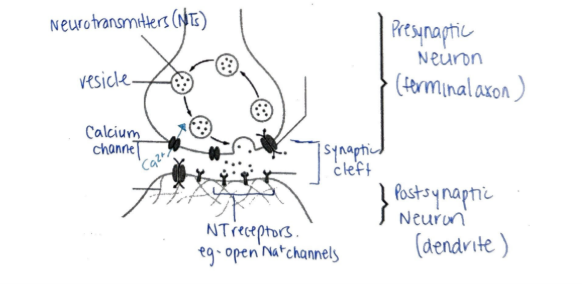 Neurotransmitters (NTs)
vesicle
Calcium
channel
Ca²⁺
Presynaptic
Neuron
(terminal axon)
synaptic
cleft
Postsynaptic
Neuron
(dendrite)
NT receptors.
eg- open Na⁺ channels